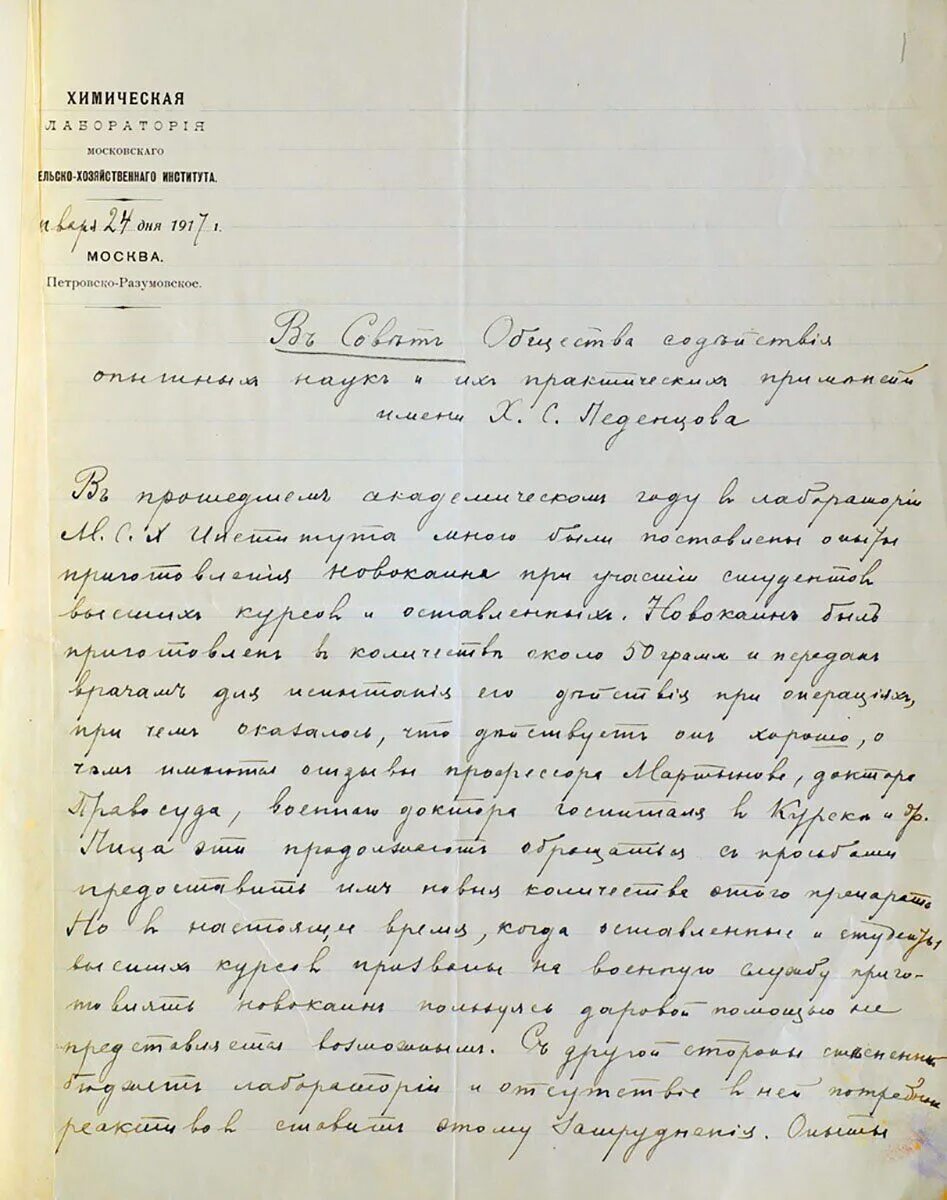 1
ХИМИЧЕСКАЯ
ЛАБОРАТОРІЯ
МОСКОВСКАГО
ЕЛЬСКО-ХОЗЯЙСТВЕННАГО ИНСТИТУТА.
нваря 24 дня 1917 г.
МОСКВА.
Петровско-Разумовское.
Въ Совѣтъ Общества содѣйствія
опытныхъ наукъ и ихъ практическихъ примѣненій
имени Х. С. Леденцова
Въ прошедшемъ академическомъ году въ лабораторіи
М. С. Х Института мною были поставлены опыты
приготовленія новокаина при участіи студентовъ
высшихъ курсовъ и оставленныхъ. Новокаинъ былъ
приготовленъ въ количествѣ около 50 граммъ и переданъ
врачамъ для испытанія его дѣйствія при операціяхъ,
при чемъ оказалось, что дѣйствуетъ онъ хорошо, о
чемъ имѣются отзывы профессора Мартынова, доктора
Правосуда, военнаго доктора госпиталя въ Курскѣ и др.
Лица эти продолжаютъ обращаться съ просьбами
предоставить имъ новыя количества этого препарата
Но въ настоящее время, когда оставленные и студенты
высшихъ курсовъ призваны на военную службу приго-
товлять новокаинъ пользуясь даровой помощью не
представляется возможнымъ. Съ другой стороны стѣсненный
бюджетъ лабораторіи и отсутствіе въ ней потребныхъ
реактивовъ ставитъ этому затрудненія. Опыты